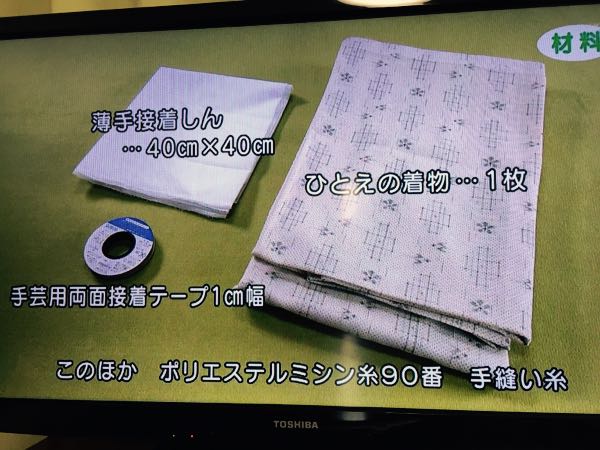 材料
薄手接着しん
…40㎝×40㎝
ひとえの着物…1枚
手芸用両面接着テープ1㎝幅
このほか ポリエステルミシン糸90番 手縫い糸
TOSHIBA